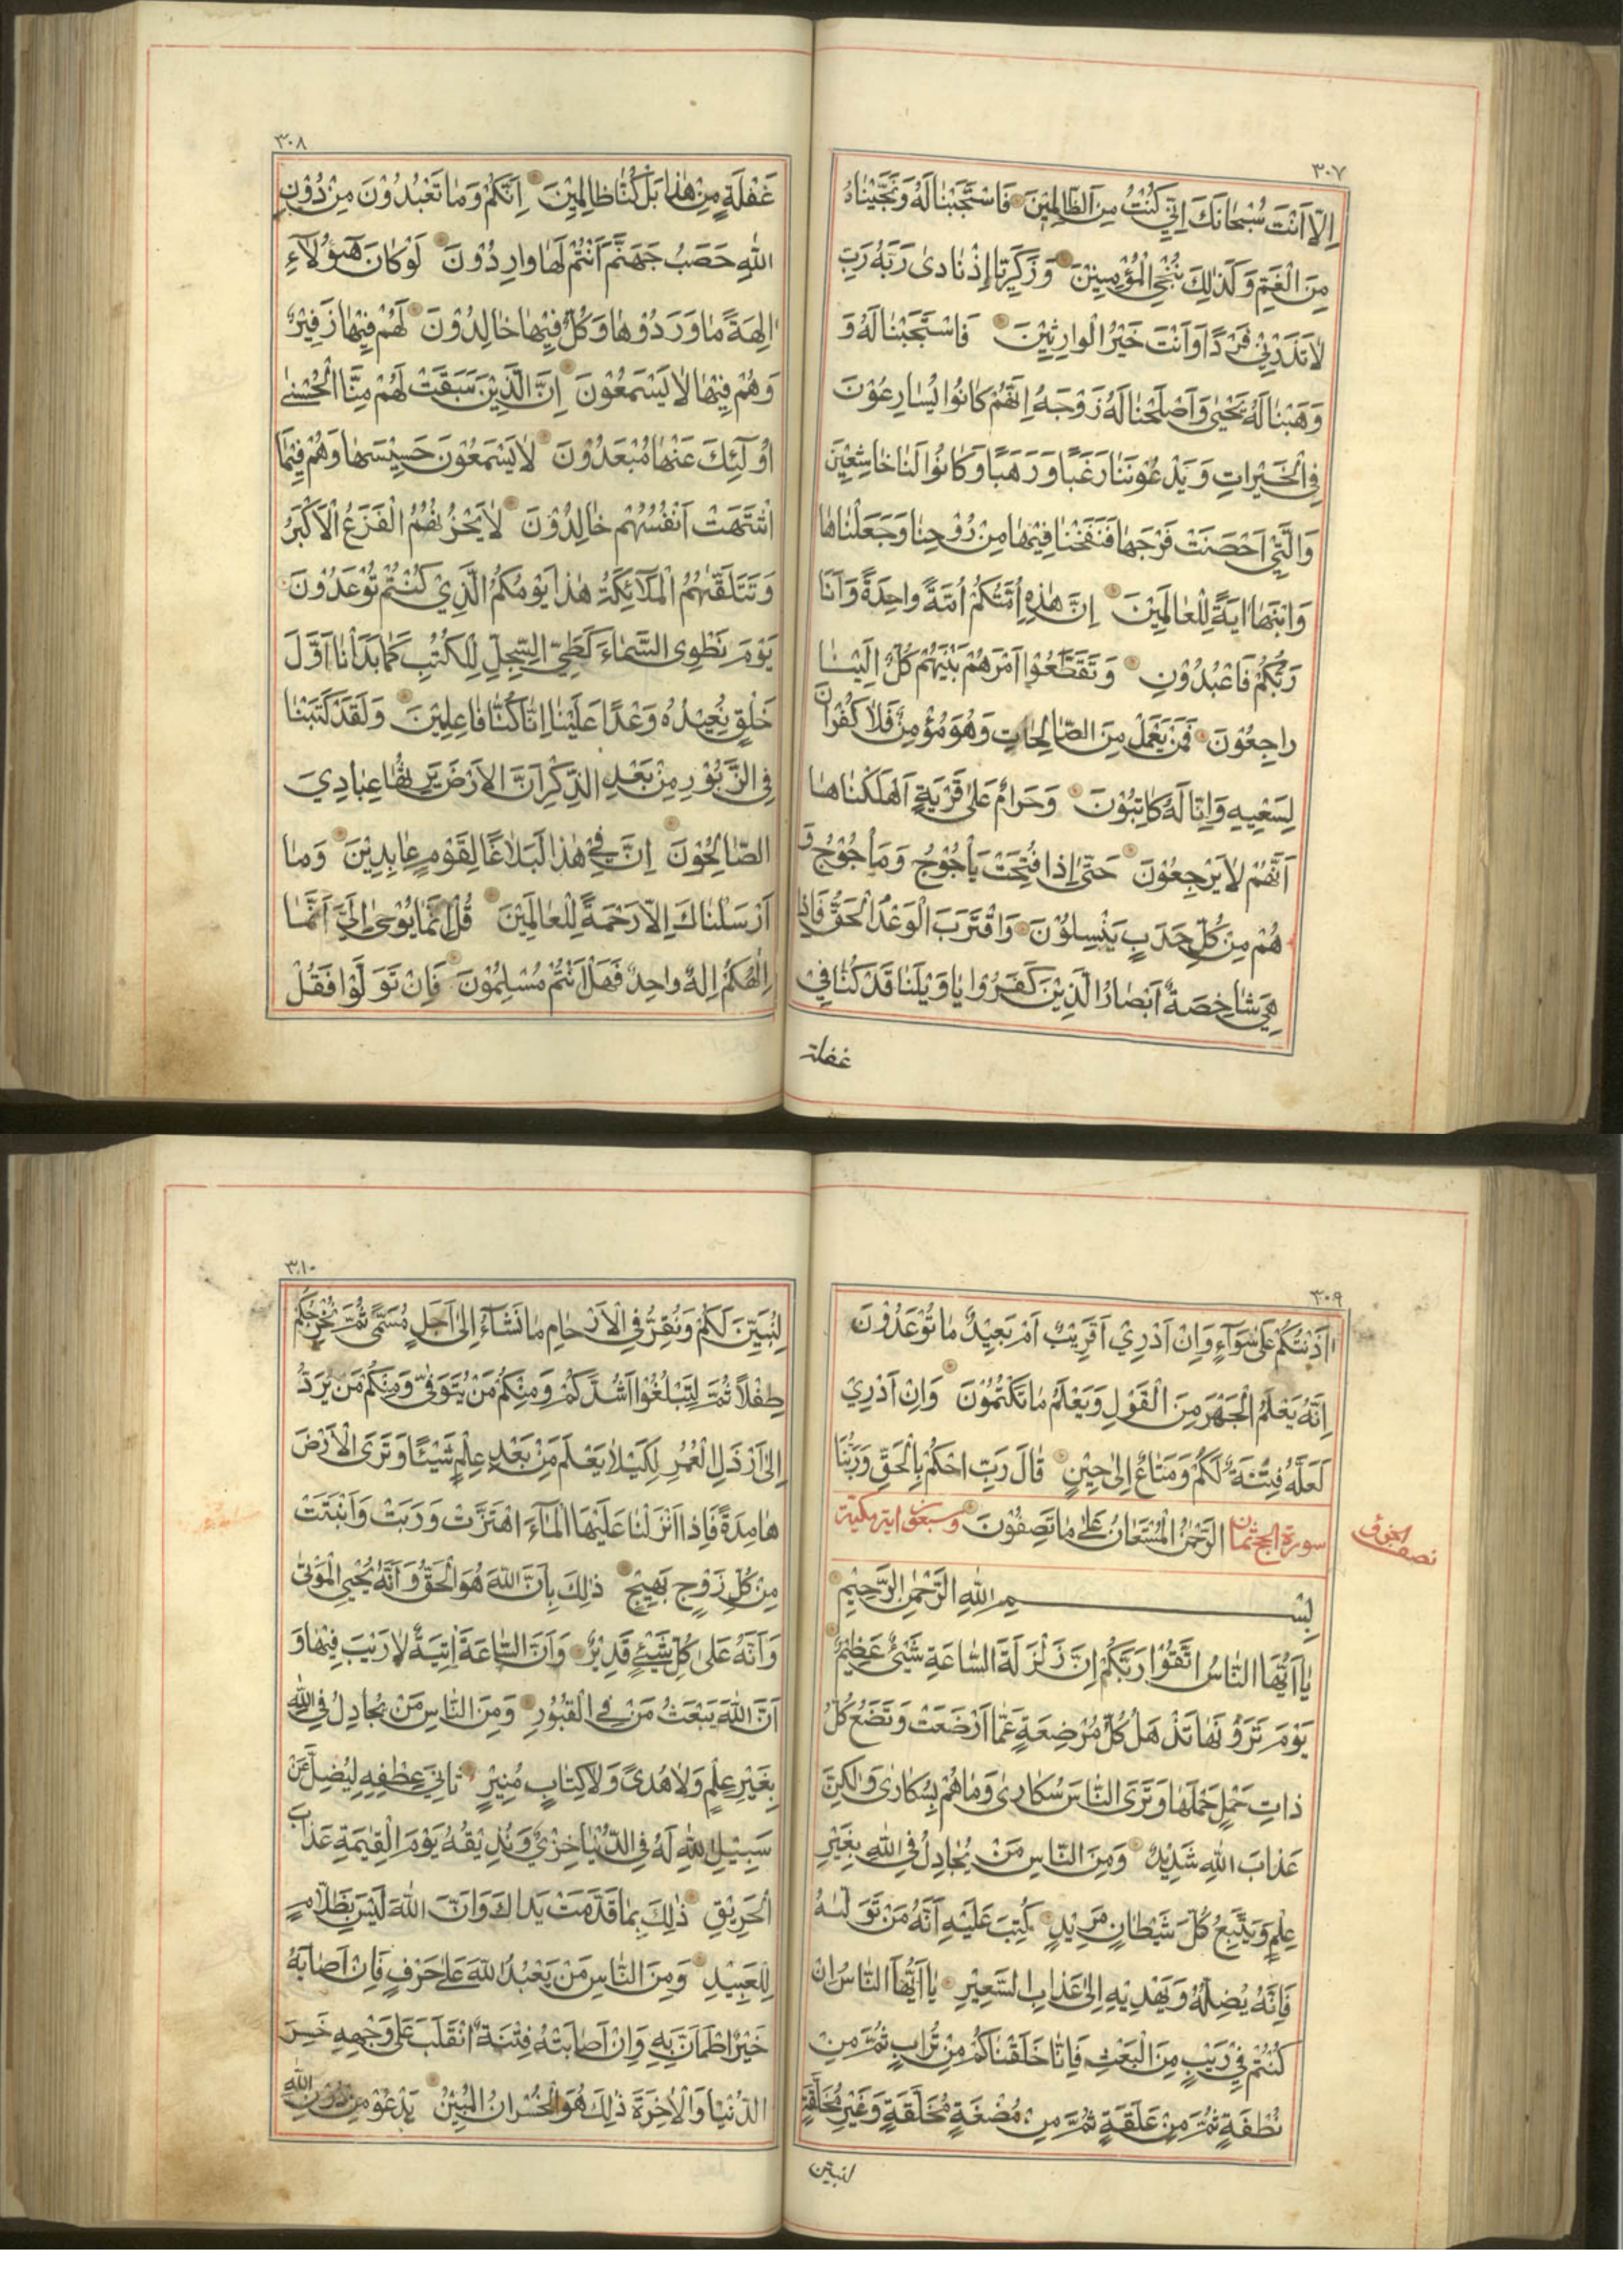 ٣٠٧
اِلّا اَنْتَ سُبْحَانَكَ اِنّي كُنْتُ مِنَ الظَّالِمِيْنَ فَاسْتَجَبْنَا لَهُ وَنَجَّيْنَاهُ
مِنَ الْغَمِّ وَكَذٰلِكَ نُنْجِي الْمُؤْمِنِيْنَ وَزَكَرِيَّا إِذْ نَادىٰ رَبَّهُ رَبِّ
لَا تَذَرْنِيْ فَرْدًا وَاَنْتَ خَيْرُ الْوارِثِيْنَ فَاسْتَجَبْنَا لَهُ وَ
وَهَبْنَا لَهُ يَحْيىٰ وَاَصْلَحْنَا لَهُ زَوْجَهُ اِنَّهُمْ كَانُوا يُسَارِعُوْنَ
فِي الْخَيْرَاتِ وَيَدْعُوْنَنَا رَغَبًا وَرَهَبًا وَكَانُوا لَنَا خَاشِعِيْنَ
وَالَّتِيْ اَحْصَنَتْ فَرْجَهَا فَنَفَخْنَا فِيْهَا مِنْ رُوْحِنَا وَجَعَلْنَاهَا
وَابْنَهَا اٰيَةً لِلْعَالَمِيْنَ اِنَّ هٰذِهِ اُمَّتُكُمْ اُمَّةً واحِدَةً وَاَنَا
رَبُّكُمْ فَاعْبُدُوْنِ وَتَقَطَّعُوا اَمْرَهُمْ بَيْنَهُمْ كُلٌّ اِلَيْنَا
راجِعُوْنَ فَمَنْ يَعْمَلْ مِنَ الصَّالِحَاتِ وَهُوَ مُؤْمِنٌ فَلَا كُفْرانَ
لِسَعْيِهِ وَاِنَّا لَهُ كَاتِبُوْنَ وَحَرامٌ عَلىٰ قَرْيَةٍ اَهْلَكْنَاهَا
اَنَّهُمْ لَا يَرْجِعُوْنَ حَتّىٰ اِذَا فُتِحَتْ يَأْجُوْجُ وَمَأْجُوْجُ وَ
هُمْ مِنْ كُلِّ حَدَبٍ يَنْسِلُوْنَ وَاقْتَرَبَ الْوَعْدُ الْحَقُّ فَاِذا
هِيَ شَاخِصَةٌ اَبْصَارُ الَّذِيْنَ كَفَرُوا يَا وَيْلَنَا قَدْ كُنَّا فِيْ
غفلة
٣٠٨
غَفْلَةٍ مِنْ هٰذا بَلْ كُنَّا ظالِمِيْنَ اِنَّكُمْ وَمَا تَعْبُدُوْنَ مِنْ دُوْنِ
اللّٰهِ حَصَبُ جَهَنَّمَ اَنْتُمْ لَهَا وارِدُوْنَ لَوْ كَانَ هٰٓؤُلَآءِ
اٰلِهَةً مَا وَرَدُوْهَا وَكُلٌّ فِيْهَا خَالِدُوْنَ لَهُمْ فِيْهَا زَفِيْرٌ
وَهُمْ فِيْهَا لَا يَسْمَعُوْنَ اِنَّ الَّذِيْنَ سَبَقَتْ لَهُمْ مِنَّا الْحُسْنىٰ
اُولٰٓئِكَ عَنْهَا مُبْعَدُوْنَ لَا يَسْمَعُوْنَ حَسِيْسَهَا وَهُمْ فِيْمَا
اشْتَهَتْ اَنْفُسُهُمْ خَالِدُوْنَ لَا يَحْزُنُهُمُ الْفَزَعُ الْاَكْبَرُ
وَتَتَلَقّٰىهُمُ الْمَلَآئِكَةُ هٰذا يَوْمُكُمُ الَّذِيْ كُنْتُمْ تُوْعَدُوْنَ
يَوْمَ نَطْوِي السَّمَاءَ كَطَيِّ السِّجِلِّ لِلْكُتُبِ كَمَا بَدَاْنَا اَوَّلَ
خَلْقٍ نُعِيْدُهُ وَعْدًا عَلَيْنَا اِنَّا كُنَّا فَاعِلِيْنَ وَلَقَدْ كَتَبْنَا
فِي الزَّبُوْرِ مِنْ بَعْدِ الذِّكْرِ اَنَّ الْاَرْضَ يَرِثُهَا عِبَادِيَ
الصَّالِحُوْنَ اِنَّ فِيْ هٰذا لَبَلَاغًا لِقَوْمٍ عَابِدِيْنَ وَمَا
اَرْسَلْنَاكَ اِلَّا رَحْمَةً لِلْعَالَمِيْنَ قُلْ اِنَّمَا يُوْحىٰ اِلَيَّ اَنَّمَا
اِلٰهُكُمْ اِلٰهٌ واحِدٌ فَهَلْ اَنْتُمْ مُسْلِمُوْنَ فَاِنْ تَوَلَّوْا فَقُلْ
٣٠٩
اٰذَنْتُكُمْ عَلىٰ سَوَآءٍ وَاِنْ اَدْرِيْ اَقَرِيْبٌ اَمْ بَعِيْدٌ مَا تُوْعَدُوْنَ
اِنَّهُ يَعْلَمُ الْجَهْرَ مِنَ الْقَوْلِ وَيَعْلَمُ مَا تَكْتُمُوْنَ وَاِنْ اَدْرِيْ
لَعَلَّهُ فِتْنَةٌ لَكُمْ وَمَتَاعٌ اِلىٰ حِيْنٍ قَالَ رَبِّ احْكُمْ بِالْحَقِّ وَرَبُّنَا
سورة الحج ثمان الرَّحْمٰنُ الْمُسْتَعَانُ عَلىٰ مَا تَصِفُوْنَ وسبعون اية مكية
نصف الجزؤ
بِسْمِ اللّٰهِ الرَّحْمٰنِ الرَّحِيْمِ
يَا اَيُّهَا النَّاسُ اتَّقُوْا رَبَّكُمْ اِنَّ زَلْزَلَةَ السَّاعَةِ شَيْئٌ عَظِيْمٌ
يَوْمَ تَرَوْنَهَا تَذْهَلُ كُلُّ مُرْضِعَةٍ عَمَّا اَرْضَعَتْ وَتَضَعُ كُلُّ
ذاتِ حَمْلٍ حَمْلَهَا وَتَرَى النَّاسَ سُكَارىٰ وَمَا هُمْ بِسُكَارىٰ وَلٰكِنَّ
عَذَابَ اللّٰهِ شَدِيْدٌ وَمِنَ النَّاسِ مَنْ يُجَادِلُ فِي اللّٰهِ بِغَيْرِ
عِلْمٍ وَيَتَّبِعُ كُلَّ شَيْطَانٍ مَرِيْدٍ كُتِبَ عَلَيْهِ اَنَّهُ مَنْ تَوَلَّاهُ
فَاَنَّهُ يُضِلُّهُ وَيَهْدِيْهِ اِلىٰ عَذَابِ السَّعِيْرِ يَا اَيُّهَا النَّاسُ اِنْ
كُنْتُمْ فِيْ رَيْبٍ مِنَ الْبَعْثِ فَاِنَّا خَلَقْنَاكُمْ مِنْ تُرَابٍ ثُمَّ مِنْ
نُطْفَةٍ ثُمَّ مِنْ عَلَقَةٍ ثُمَّ مِنْ مُضْغَةٍ مُخَلَّقَةٍ وَغَيْرِ مُخَلَّقَةٍ
لنبين
٣١٠
لِنُبَيِّنَ لَكُمْ وَنُقِرُّ فِي الْاَرْحَامِ مَا نَشَآءُ اِلىٰ اَجَلٍ مُسَمًّى ثُمَّ نُخْرِجُكُمْ
طِفْلًا ثُمَّ لِتَبْلُغُوا اَشُدَّكُمْ وَمِنْكُمْ مَنْ يُتَوَفّىٰ وَمِنْكُمْ مَنْ يُرَدُّ
اِلىٰ اَرْذَلِ الْعُمُرِ لِكَيْلَا يَعْلَمَ مِنْ بَعْدِ عِلْمٍ شَيْئًا وَتَرَى الْاَرْضَ
هَامِدَةً فَاِذا اَنْزَلْنَا عَلَيْهَا الْمَآءَ اهْتَزَّتْ وَرَبَتْ وَاَنْبَتَتْ
مِنْ كُلِّ زَوْجٍ بَهِيْجٍ ذٰلِكَ بِاَنَّ اللّٰهَ هُوَ الْحَقُّ وَاَنَّهُ يُحْيِي الْمَوْتىٰ
وَاَنَّهُ عَلىٰ كُلِّ شَيْئٍ قَدِيْرٌ وَاَنَّ السَّاعَةَ اٰتِيَةٌ لَا رَيْبَ فِيْهَا وَ
اَنَّ اللّٰهَ يَبْعَثُ مَنْ فِي الْقُبُوْرِ وَمِنَ النَّاسِ مَنْ يُجَادِلُ فِي اللّٰهِ
بِغَيْرِ عِلْمٍ وَلَا هُدىً وَلَا كِتَابٍ مُنِيْرٍ ثَانِيَ عِطْفِهِ لِيُضِلَّ عَنْ
سَبِيْلِ اللّٰهِ لَهُ فِي الدُّنْيَا خِزْيٌ وَنُذِيْقُهُ يَوْمَ الْقِيٰمَةِ عَذَابَ
الْحَرِيْقِ ذٰلِكَ بِمَا قَدَّمَتْ يَدَاكَ وَاَنَّ اللّٰهَ لَيْسَ بِظَلَّامٍ
لِلْعَبِيْدِ وَمِنَ النَّاسِ مَنْ يَعْبُدُ اللّٰهَ عَلىٰ حَرْفٍ فَاِنْ اَصَابَهُ
خَيْرٌ اطْمَاَنَّ بِهِ وَاِنْ اَصَابَتْهُ فِتْنَةٌ انْقَلَبَ عَلىٰ وَجْهِهِ خَسِرَ
الدُّنْيَا وَالْاٰخِرَةَ ذٰلِكَ هُوَ الْخُسْرانُ الْمُبِيْنُ يَدْعُوْ مِنْ دُوْنِ اللّٰهِ